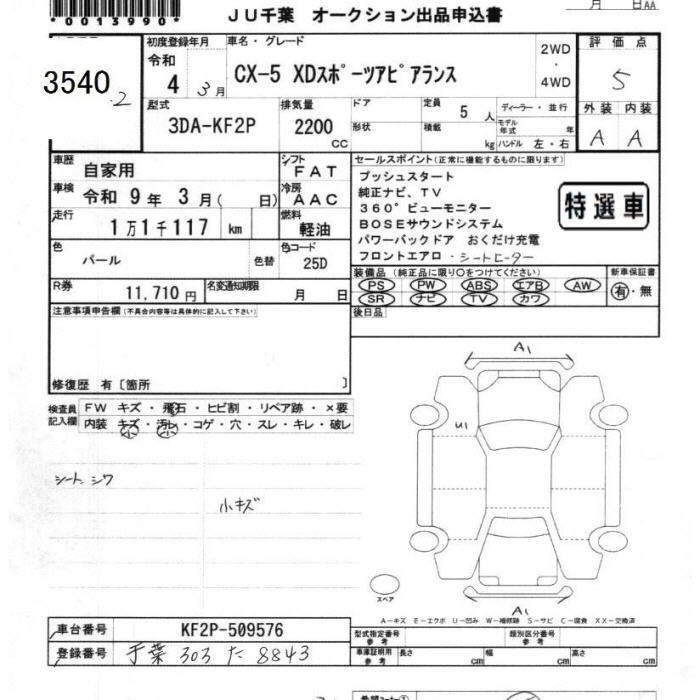 *0013990*
JU千葉 オークション出品申込書
月 日AA
3540
2
初度登録年月
令和 4 3月
車名・グレード
CX-5 XDスポーツアピアランス
2WD ・ 4WD
評価点
5
外装 内装
A A
型式
3DA-KF2P
排気量
2200 CC
ドア
形状
定員
5 人
積載 kg
ディーラー・並行
モデル年式 年
ハンドル 左・右
車歴
自家用
車検 令和 9年 3月( 日)
走行
1万1千117 km
色
パール 色替
シフト
FAT
冷房
AAC
燃料
軽油
色コード
25D
R券
11,710円
名変通知期限
月 日
セールスポイント(正常に機能するものに限ります)
プッシュスタート
純正ナビ、TV
360°ビューモニター
BOSEサウンドシステム
パワーバックドア おくだけ充電
フロントエアロ・シートヒーター
特選車
装備品(純正品に限り○をつけてください)
PS PW ABS エアB AW
SR ナビ TV カワ
新車保証書
有・無
後日品
注意事項申告欄(不具合内容等は具体的に記入して下さい)
修復歴 有〔箇所 〕
検査員記入欄
FW キズ・飛石・ヒビ割・リペア跡・×要
内装 キズ・汚レ・コゲ・穴・スレ・キレ・破レ
小 小
シートシワ
小キズ
A1
U1
A1
スペア
A−キズ E−エクボ U−凹み W−補修跡 S−サビ C−腐食 XX−交換済
車台番号 KF2P-509576
登録番号 千葉 303 た 8843
型式指定番号 参考
類別区分番号 参考
車庫証明用 参考
長さ cm 幅 cm 高さ cm